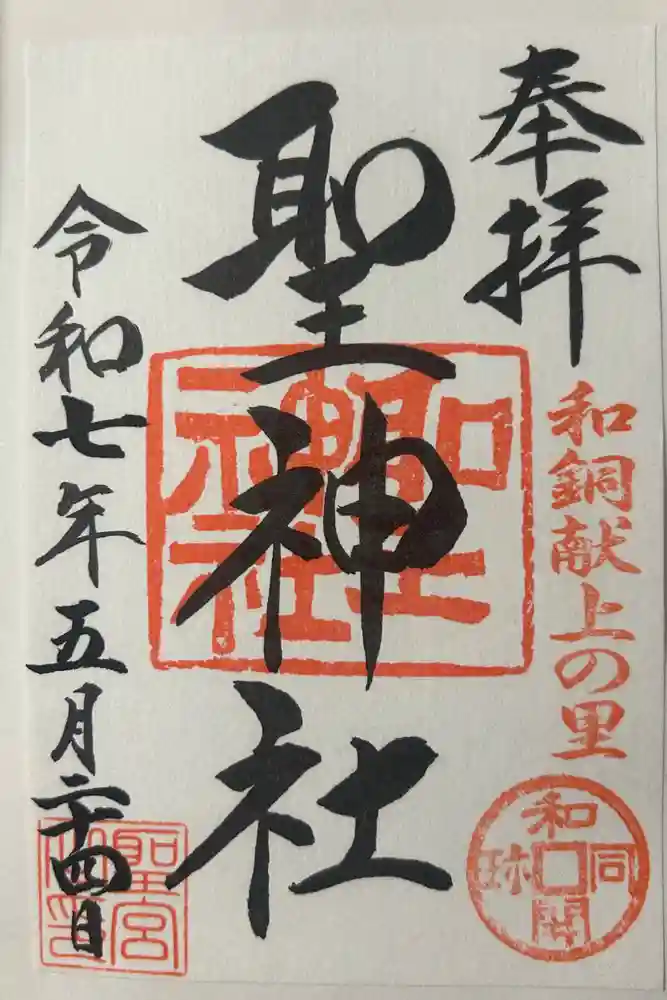 奉拝
和銅献上の里
和同開珎
聖神社
聖神社
令和七年五月二十四日
聖宮